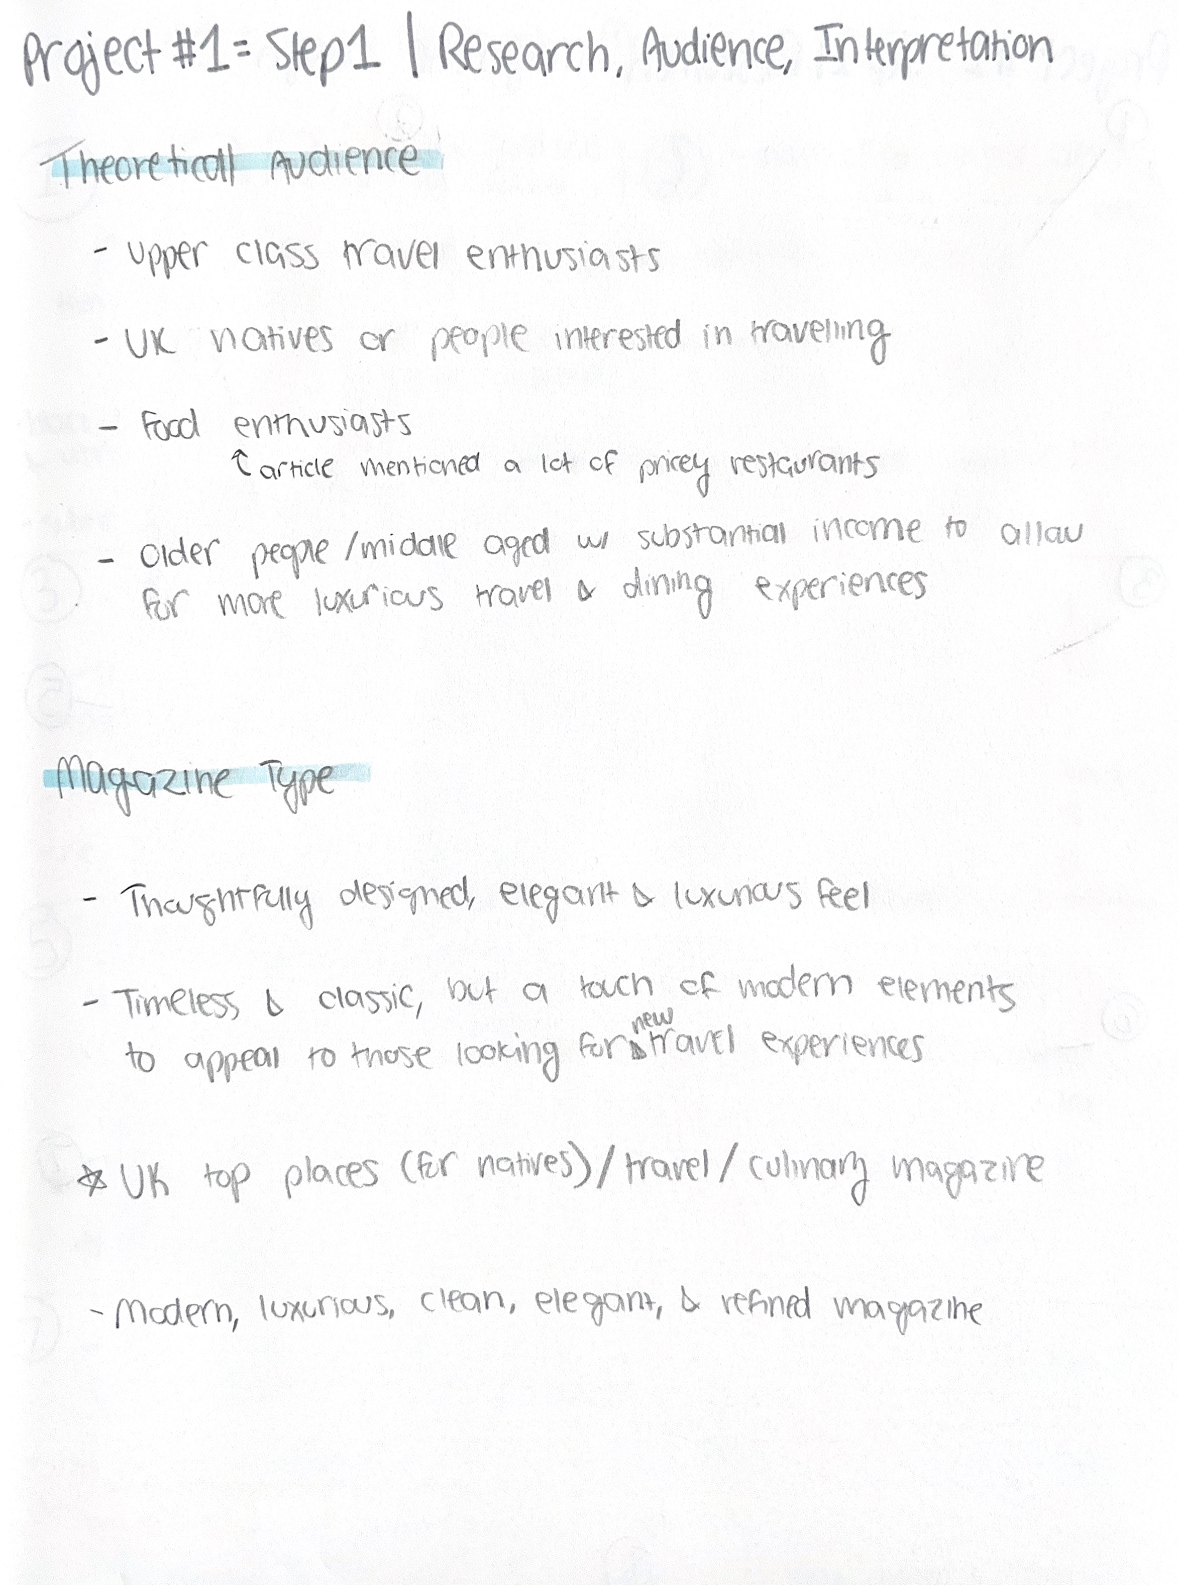 Project #1 = Step 1 | Research, Audience, Interpretation
Theoretical Audience
- Upper class travel enthusiasts
- UK natives or people interested in travelling
- Food enthusiasts
↑ article mentioned a lot of pricey restaurants
- Older people/middle aged w/ substantial income to allow
for more luxurious travel & dining experiences
Magazine Type
- Thoughtfully designed, elegant & luxurious feel
- Timeless & classic, but a touch of modern elements
to appeal to those looking for new travel experiences
☆ UK top places (for natives)/travel/culinary magazine
- Modern, luxurious, clean, elegant, & refined magazine